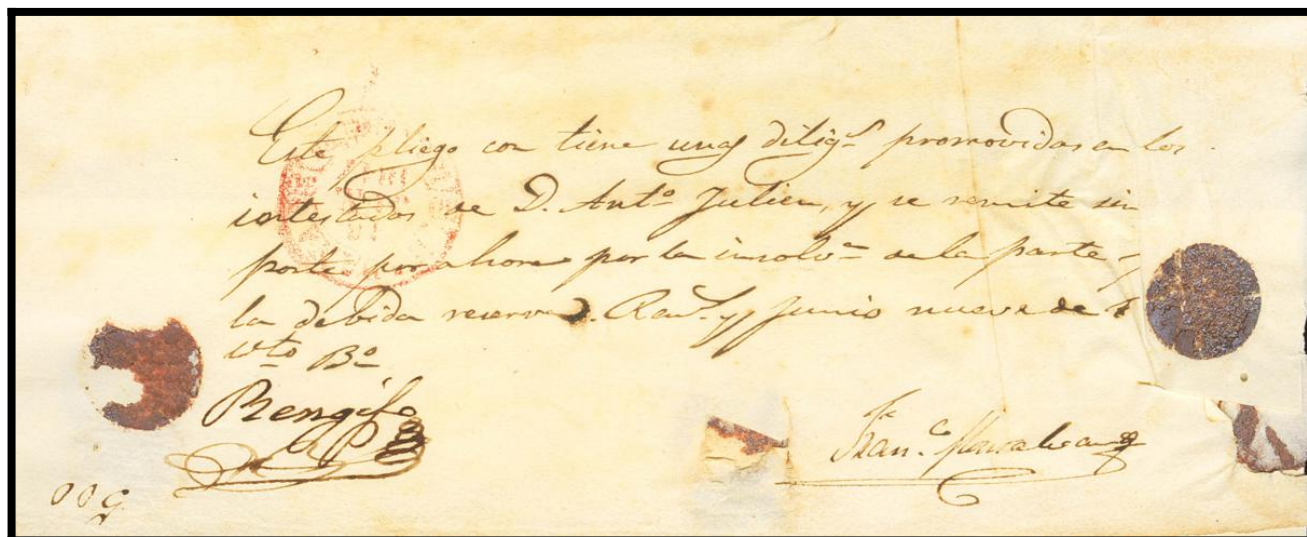 Este pliego con tiene unas dilig.s promovidas en los
intestados de D. Ant.o Julien, y se remite sin
porte por ahora por la insolv.a de la parte
la debida reserva. y Junio nueve de
Vto Bo
Rengifo
Fran.co